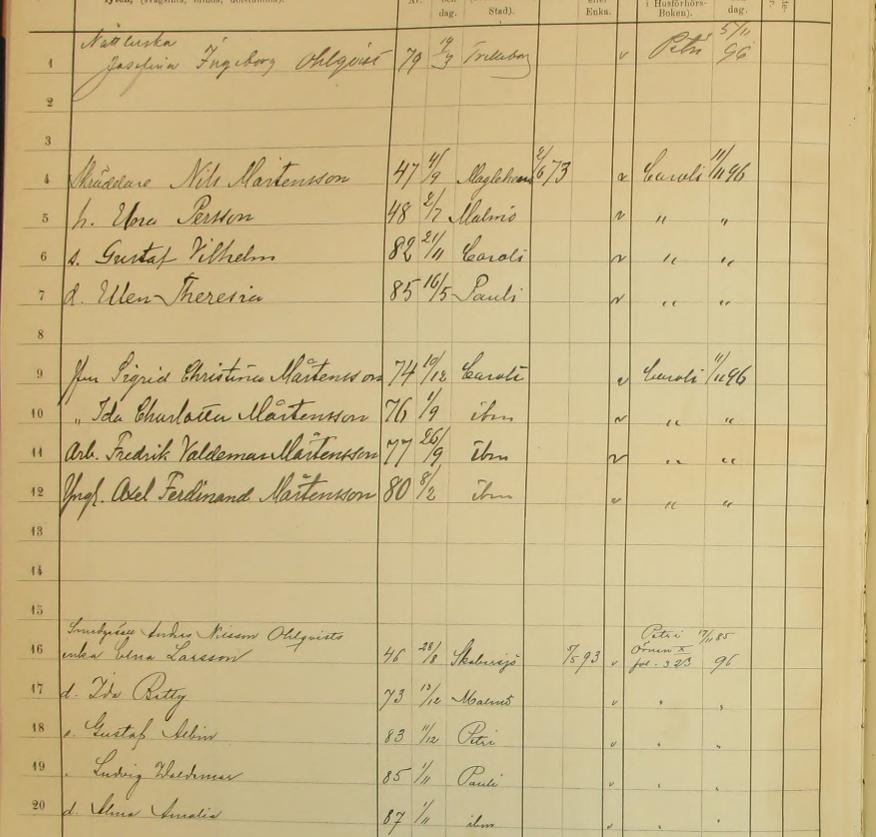 dag. Stad). Enka. i Husförhörs-Boken). dag.
5/11
1 Josefina Ingeborg Ohlqvist 79 Trelleborg v Petri 96
2
3
4 Skräddare Nils Mårtensson 47 4/9 2/6 73 v Caroli 11/11 96
5 h. Persson 48 2/7 Malmö v " "
6 s. Gustaf Vilhelm 82 21/11 Caroli v " "
7 d. Ellen Theresia 85 16/5 Pauli v " "
8
9 Jfn Sigrid Christina Mårtensson 74 10/12 Caroli v Caroli 11/11 96
10 " Ida Charlotta Mårtensson 76 1/9 ibm v " "
11 Arb. Fredrik Valdemar Mårtensson 77 26/9 ibm v " "
12 Yngl. Axel Ferdinand Mårtensson 80 8/2 ibm v " "
13
14
15
Smedgesäll Anders Nilsson Ohlqvists Petri 17/11 85
16 enka Elna Larsson 46 28/8 Skabersjö 7/5 93 v fol. 323 96
17 d. Ida Betty 73 13/12 Malmö v " "
18 s. Gustaf Albin 83 11/12 Petri v " "
19 Ludvig Waldemar 85 1/11 Pauli v " "
20 d. Alma Amalia 87 1/11 ibm v " "